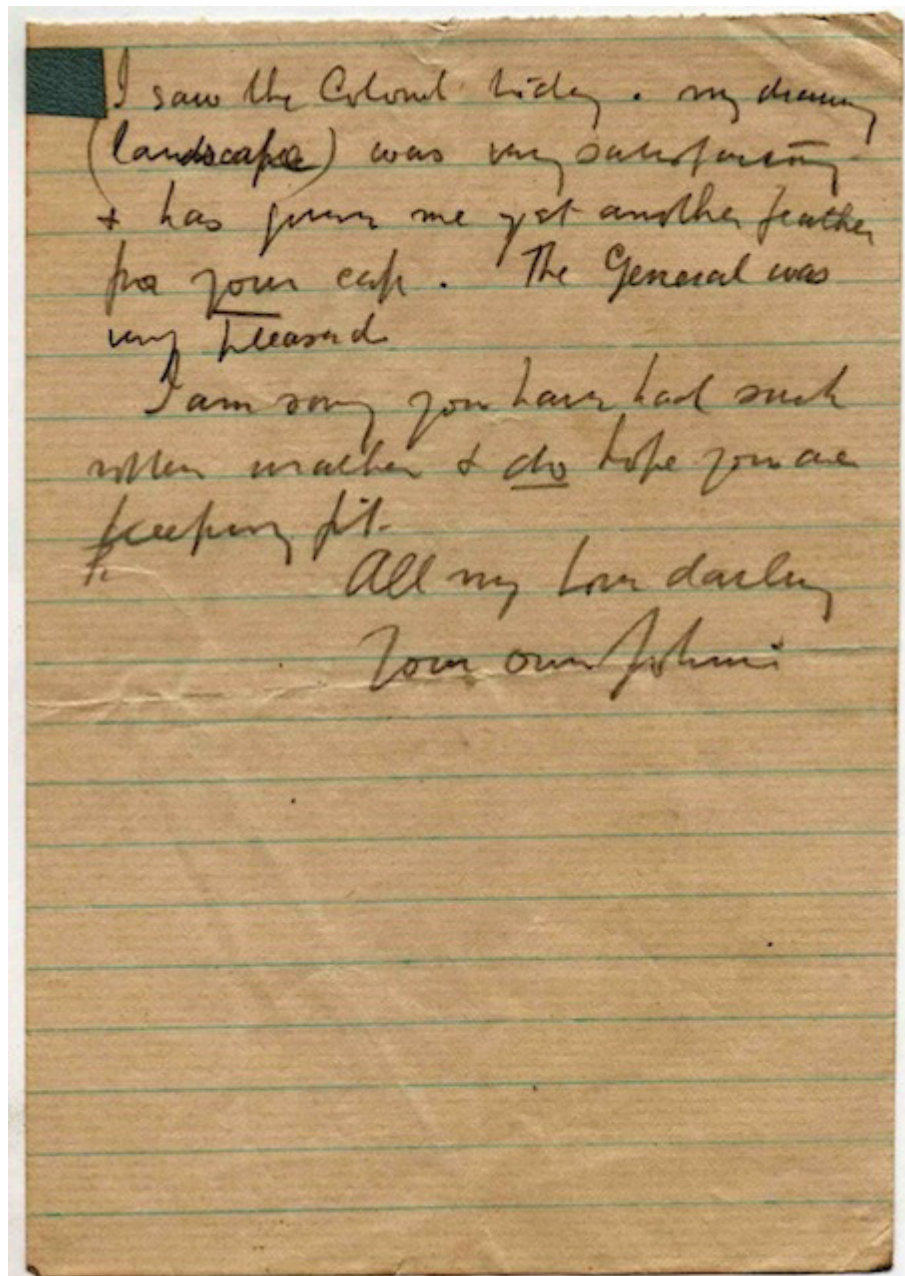 I saw the Colonel today. my drawing
(landscape) was very satisfactory
& has given me yet another feather
for your cap. The General was
very pleased
I am sorry you have had such
rotten weather & do hope you are
keeping fit.
All my love darling
Your own Johnnie